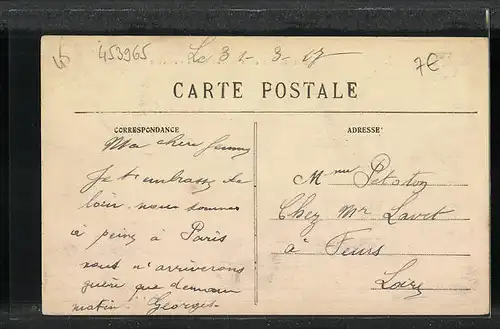 453965
Le 31-3-17
7€
CARTE POSTALE
CORRESPONDANCE
Ma chère femme
Je t'embrasse de
loin nous sommes
à peine à Paris
nous n'arriverons
guère que demain
matin. Georges-
ADRESSE
Mme Pitston
Chez Mr Lavet
à Feurs
Loire